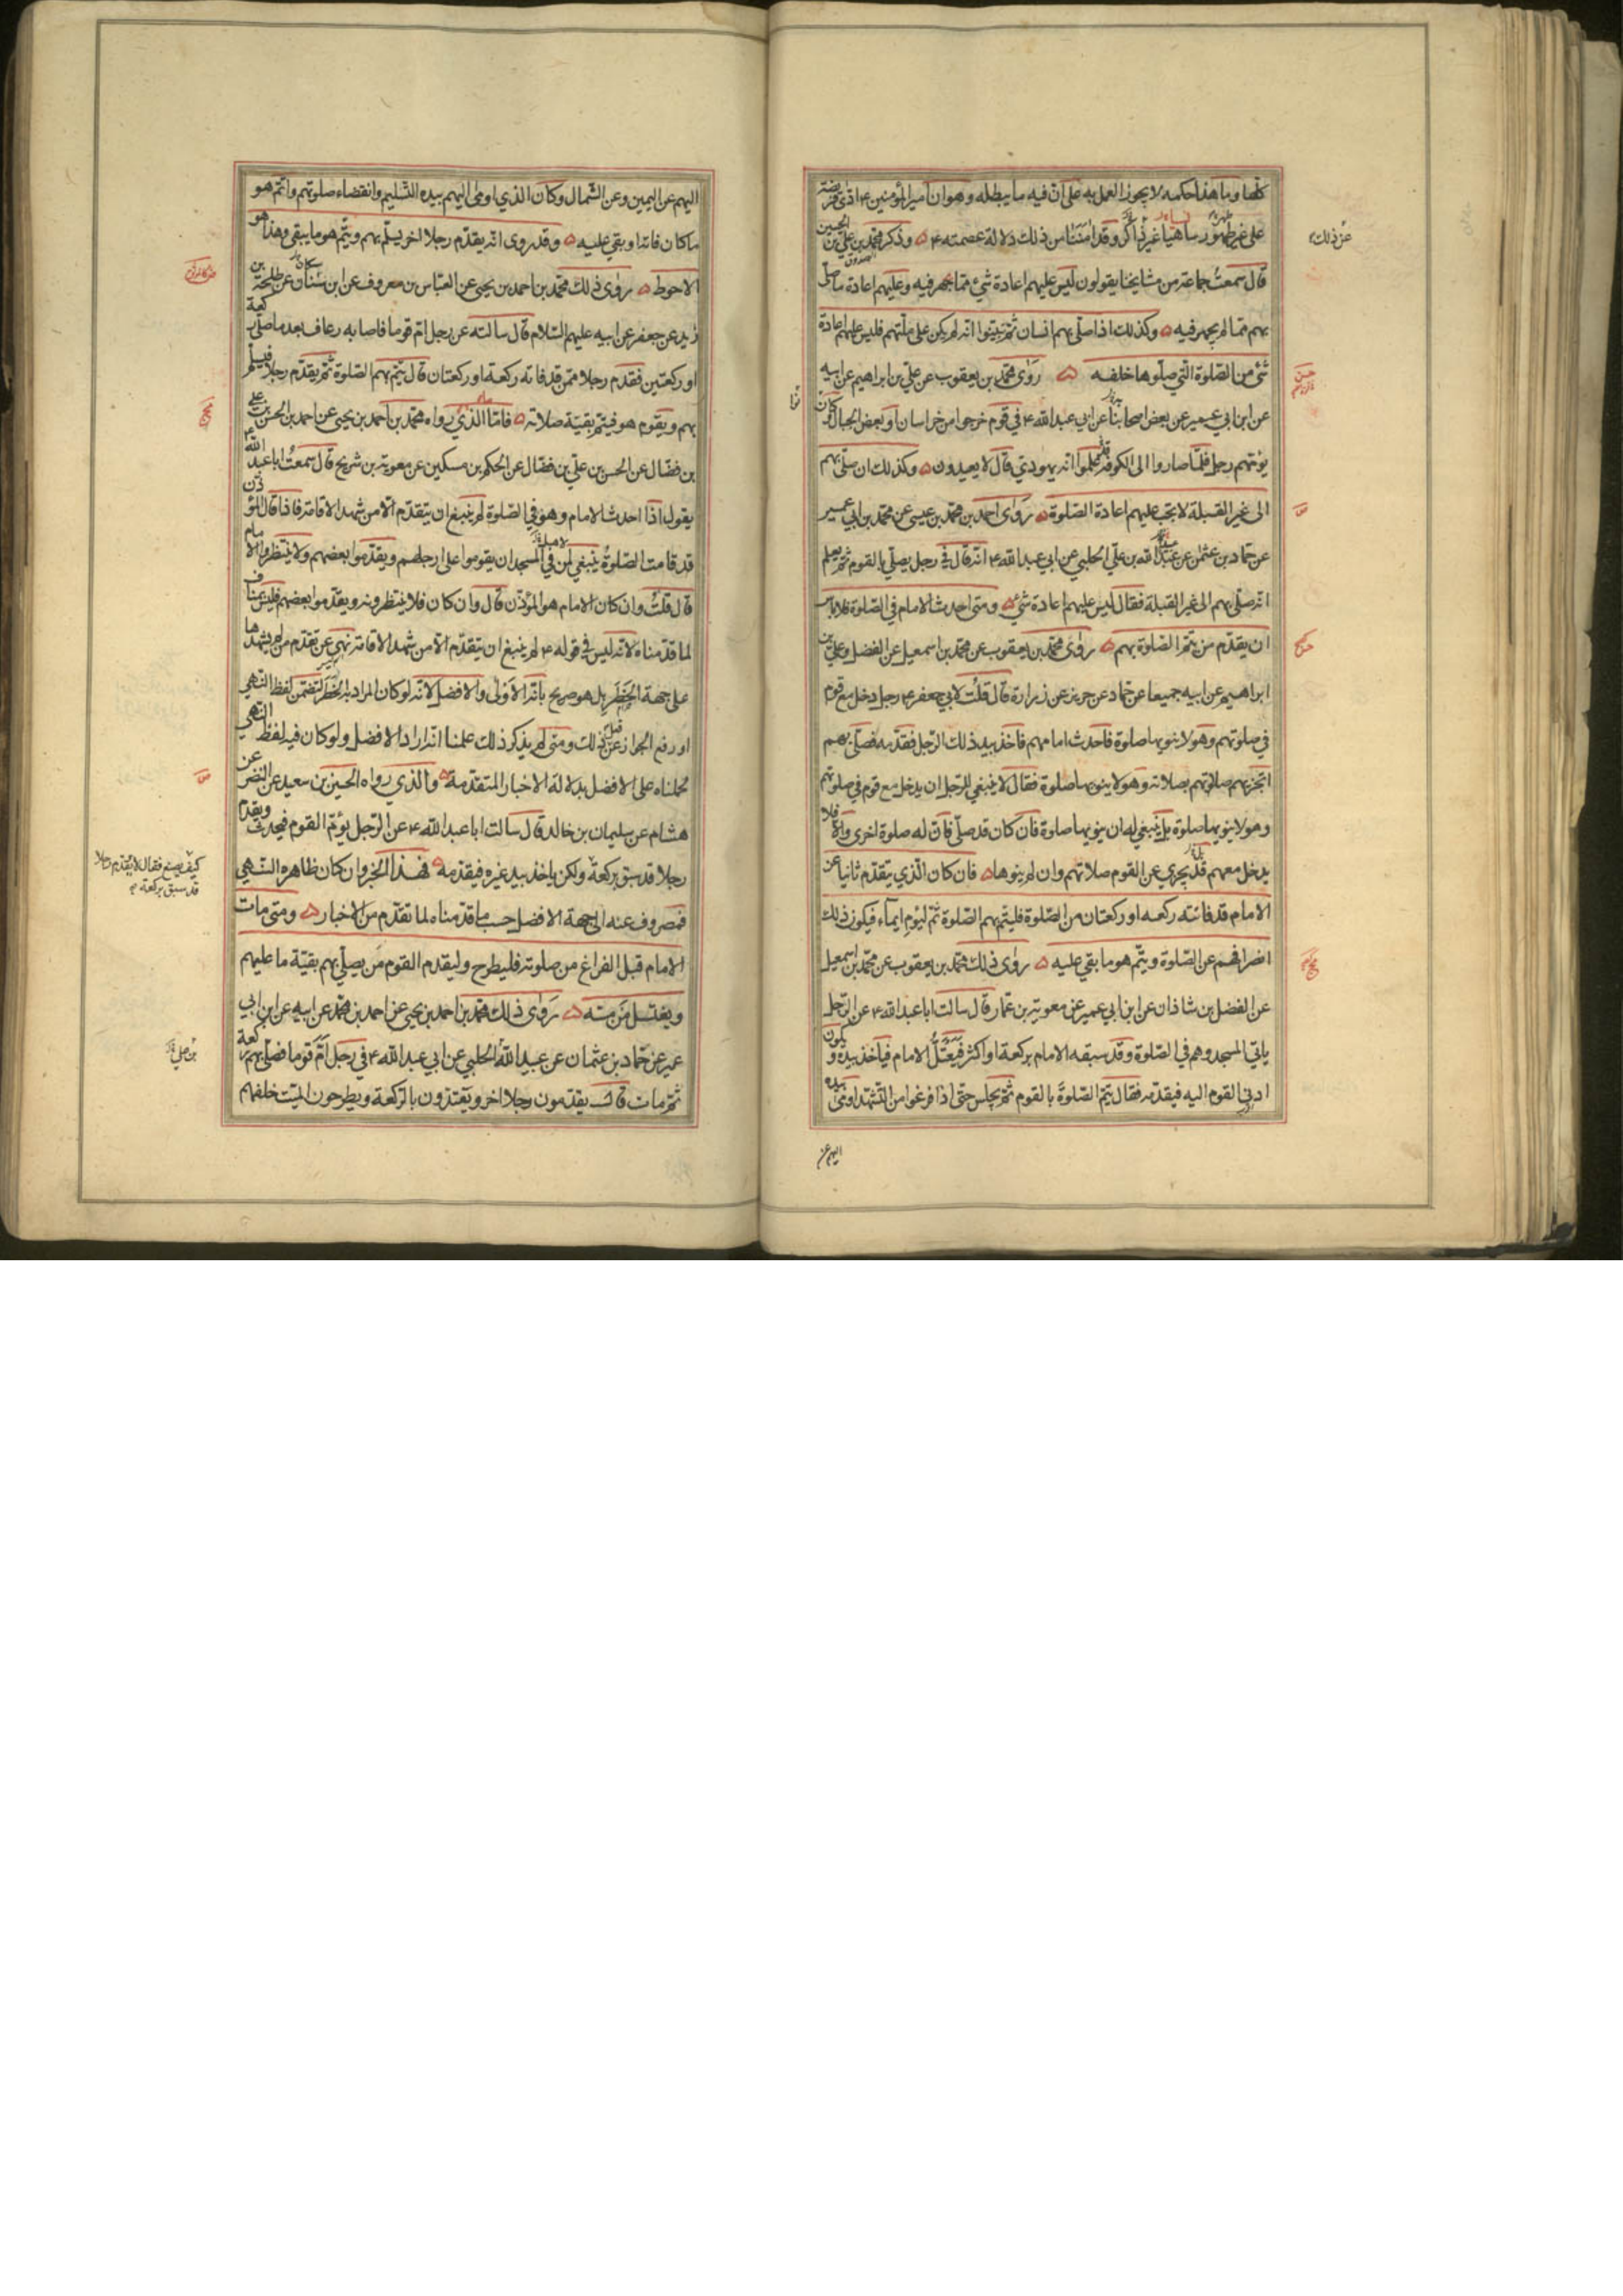 كلها وما هذا حكمه لا يجوز العمل به على ان فيه ما يبطله وهو ان امير المؤمنين ع ادى فريضة
على غير طهور ساهيا غير ذاكر وقد امننا من ذلك دلالة عصمته ع وذكر محمد بن علي بن الحسين
قال سمعت جماعة من مشايخنا يقولون ليس عليهم اعادة شئ مما جهر فيه وعليهم اعادة ما صلى
بهم مما لم يجهر فيه وكذلك اذا صلى بهم انسان ثم تبينوا انه لم يكن على ملتهم فليس عليهم اعادة
شئ من الصلوة التي صلوها خلفه روى محمد بن يعقوب عن علي بن ابراهيم عن ابيه
عن ابن ابي عمير عن بعض اصحابنا عن ابي عبد الله ع في قوم خرجوا من خراسان او بعض الجبال وكان
يؤمهم رجل فلما صاروا الى الكوفة علموا انه يهودي قال لا يعيدون وكذلك ان صلى بهم
الى غير القبلة لا تجب عليهم اعادة الصلوة روى احمد بن محمد بن عيسى عن محمد بن ابي عمير
عن حماد بن عثمن عن عبيد الله بن علي الحلبي عن ابي عبد الله ع انه قال في رجل يصلي بالقوم ثم يعلم
انه صلى بهم الى غير القبلة فقال ليس عليهم اعادة شئ ومتى احدث الامام في الصلوة فلا باس
ان يقدم من يتم الصلوة بهم روى محمد بن يعقوب عن محمد بن اسمعيل عن الفضل وعلي بن
ابراهيم عن ابيه جميعا عن حماد عن حريز عن زرارة قال قلت لابي جعفر ع رجل دخل مع قوم
في صلوتهم وهو لا ينويها صلوة فاحدث امامهم فاخذ بيد ذلك الرجل فقدمه فصلى بهم
اتجزيهم صلاتهم بصلاته وهو لا ينويها صلوة فقال لا ينبغي للرجل ان يدخل مع قوم في صلوتهم
وهو لا ينويها صلوة بل ينبغي له ان ينويها صلوة فان كان قد صلى فان له صلوة اخرى والا فلا
يدخل معهم قد يجزي عن القوم صلاتهم وان لم ينوها فان كان الذي يتقدم ثانيا عن
الامام قد فاتته ركعه او ركعتان من الصلوة فليتم بهم الصلوة ثم ليوم ايماء فيكون ذلك
انصرافهم عن الصلوة ويتم هو ما بقي عليه روى ذلك محمد بن يعقوب عن محمد بن اسمعيل
عن الفضل بن شاذان عن ابن ابي عمير عن معوية بن عمار قال سالت ابا عبد الله ع عن الرجل
ياتي المسجد وهم في الصلوة وقد سبقه الامام بركعة او اكثر فيعتل الامام فياخذ بيده ويكون
ادنى القوم اليه فيقدمه فقال يتم الصلوة بالقوم ثم يجلس حتى اذا فرغوا من التشهد اومى بيده
اليهم عن
عن ذلك
اليهم عن اليمين وعن الشمال وكان الذي اومى اليهم بيده التسليم وانقضاء صلوتهم واتم هو
ما كان فاته او بقي عليه وقد روى انه يقدم رجلا اخر يسلم بهم ويتم هو ما بقي وهذا هو
الاحوط روى ذلك محمد بن احمد بن يحيى عن العباس بن معروف عن ابن سنان عن طلحة بن
زيد عن جعفر عن ابيه عليهم السلام قال سالته عن رجل ام قوما فاصابه رعاف بعد ما صلى ركعة
او ركعتين فقدم رجلا ممن قد فاته ركعة او ركعتان قال يتم بهم الصلوة ثم يقدم رجلا فيسلم
بهم ويقوم هو فيتم بقية صلاته فاما الذي رواه محمد بن احمد بن يحيى عن احمد بن الحسن بن علي
بن فضال عن الحسن بن علي بن فضال عن الحكم بن مسكين عن معوية بن شريح قال سمعت ابا عبد الله ع
يقول اذا احدث الامام وهو في الصلوة لم ينبغ ان يتقدم الا من شهد الاقامة فاذا قال المؤذن
قد قامت الصلوة ينبغي لمن في المسجد ان يقوموا على ارجلهم ويقدموا بعضهم ولا ينتظروا الامام
قال قلت وان كان الامام هو المؤذن قال وان كان فلا ينتظرونه ويقدموا بعضهم فليس بمناف
لما قدمناه لانه ليس في قوله ع لم ينبغ ان يتقدم الا من شهد الاقامة نهي عن تقدم من لم يشهدها
على جهة الحظر بل هو صريح بانه الاولى والافضل لانه لو كان المراد به الحظر لتضمن لفظ النهي
او رفع الجواز عن فعل ذلك ومتى لم يذكر ذلك علمنا انه اراد الافضل ولو كان فيه لفظ النهي
لحملناه على الافضل بدلالة الاخبار المتقدمة والذي رواه الحسين بن سعيد عن النضر عن
هشام عن سليمان بن خالد قال سالت ابا عبد الله ع عن الرجل يؤم القوم فيحدث ويقدم
رجلا قد سبق بركعة ولكن ياخذ بيد غيره فيقدمه فهذا الخبر وان كان ظاهره النهي
فمصروف عنه الى جهة الافضل حسب ما قدمناه لما تقدم من الاخبار ومتى مات
الامام قبل الفراغ من صلوته فليطرح وليقدم القوم من يصلي بهم بقية ما عليهم
ويغتسل من مسه روى ذلك محمد بن احمد بن يحيى عن احمد بن محمد عن ابيه عن ابن ابي
عمير عن حماد بن عثمان عن عبيد الله الحلبي عن ابي عبد الله ع في رجل ام قوما فصلى بهم ركعة
ثم مات قال يقدمون رجلا اخر ويعتدون بالركعة ويطرحون الميت خلفهم
كيف يصنع فقال لا يقدم رجلا
قد سبق بركعة
بن علي